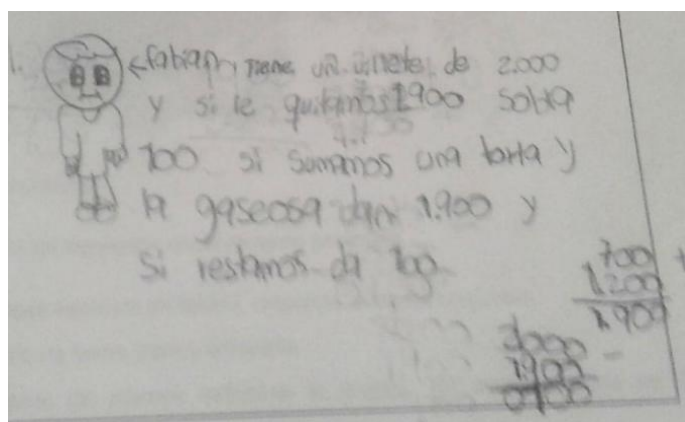 1.
<fabian, tiene un villete de 2.000
y si le quitamos 1.900 sobra
100 si sumamos una torta y
la gaseosa dan 1.900 y
si restamos da 100
700
1.200
1.900
2000
1.900 -
0100